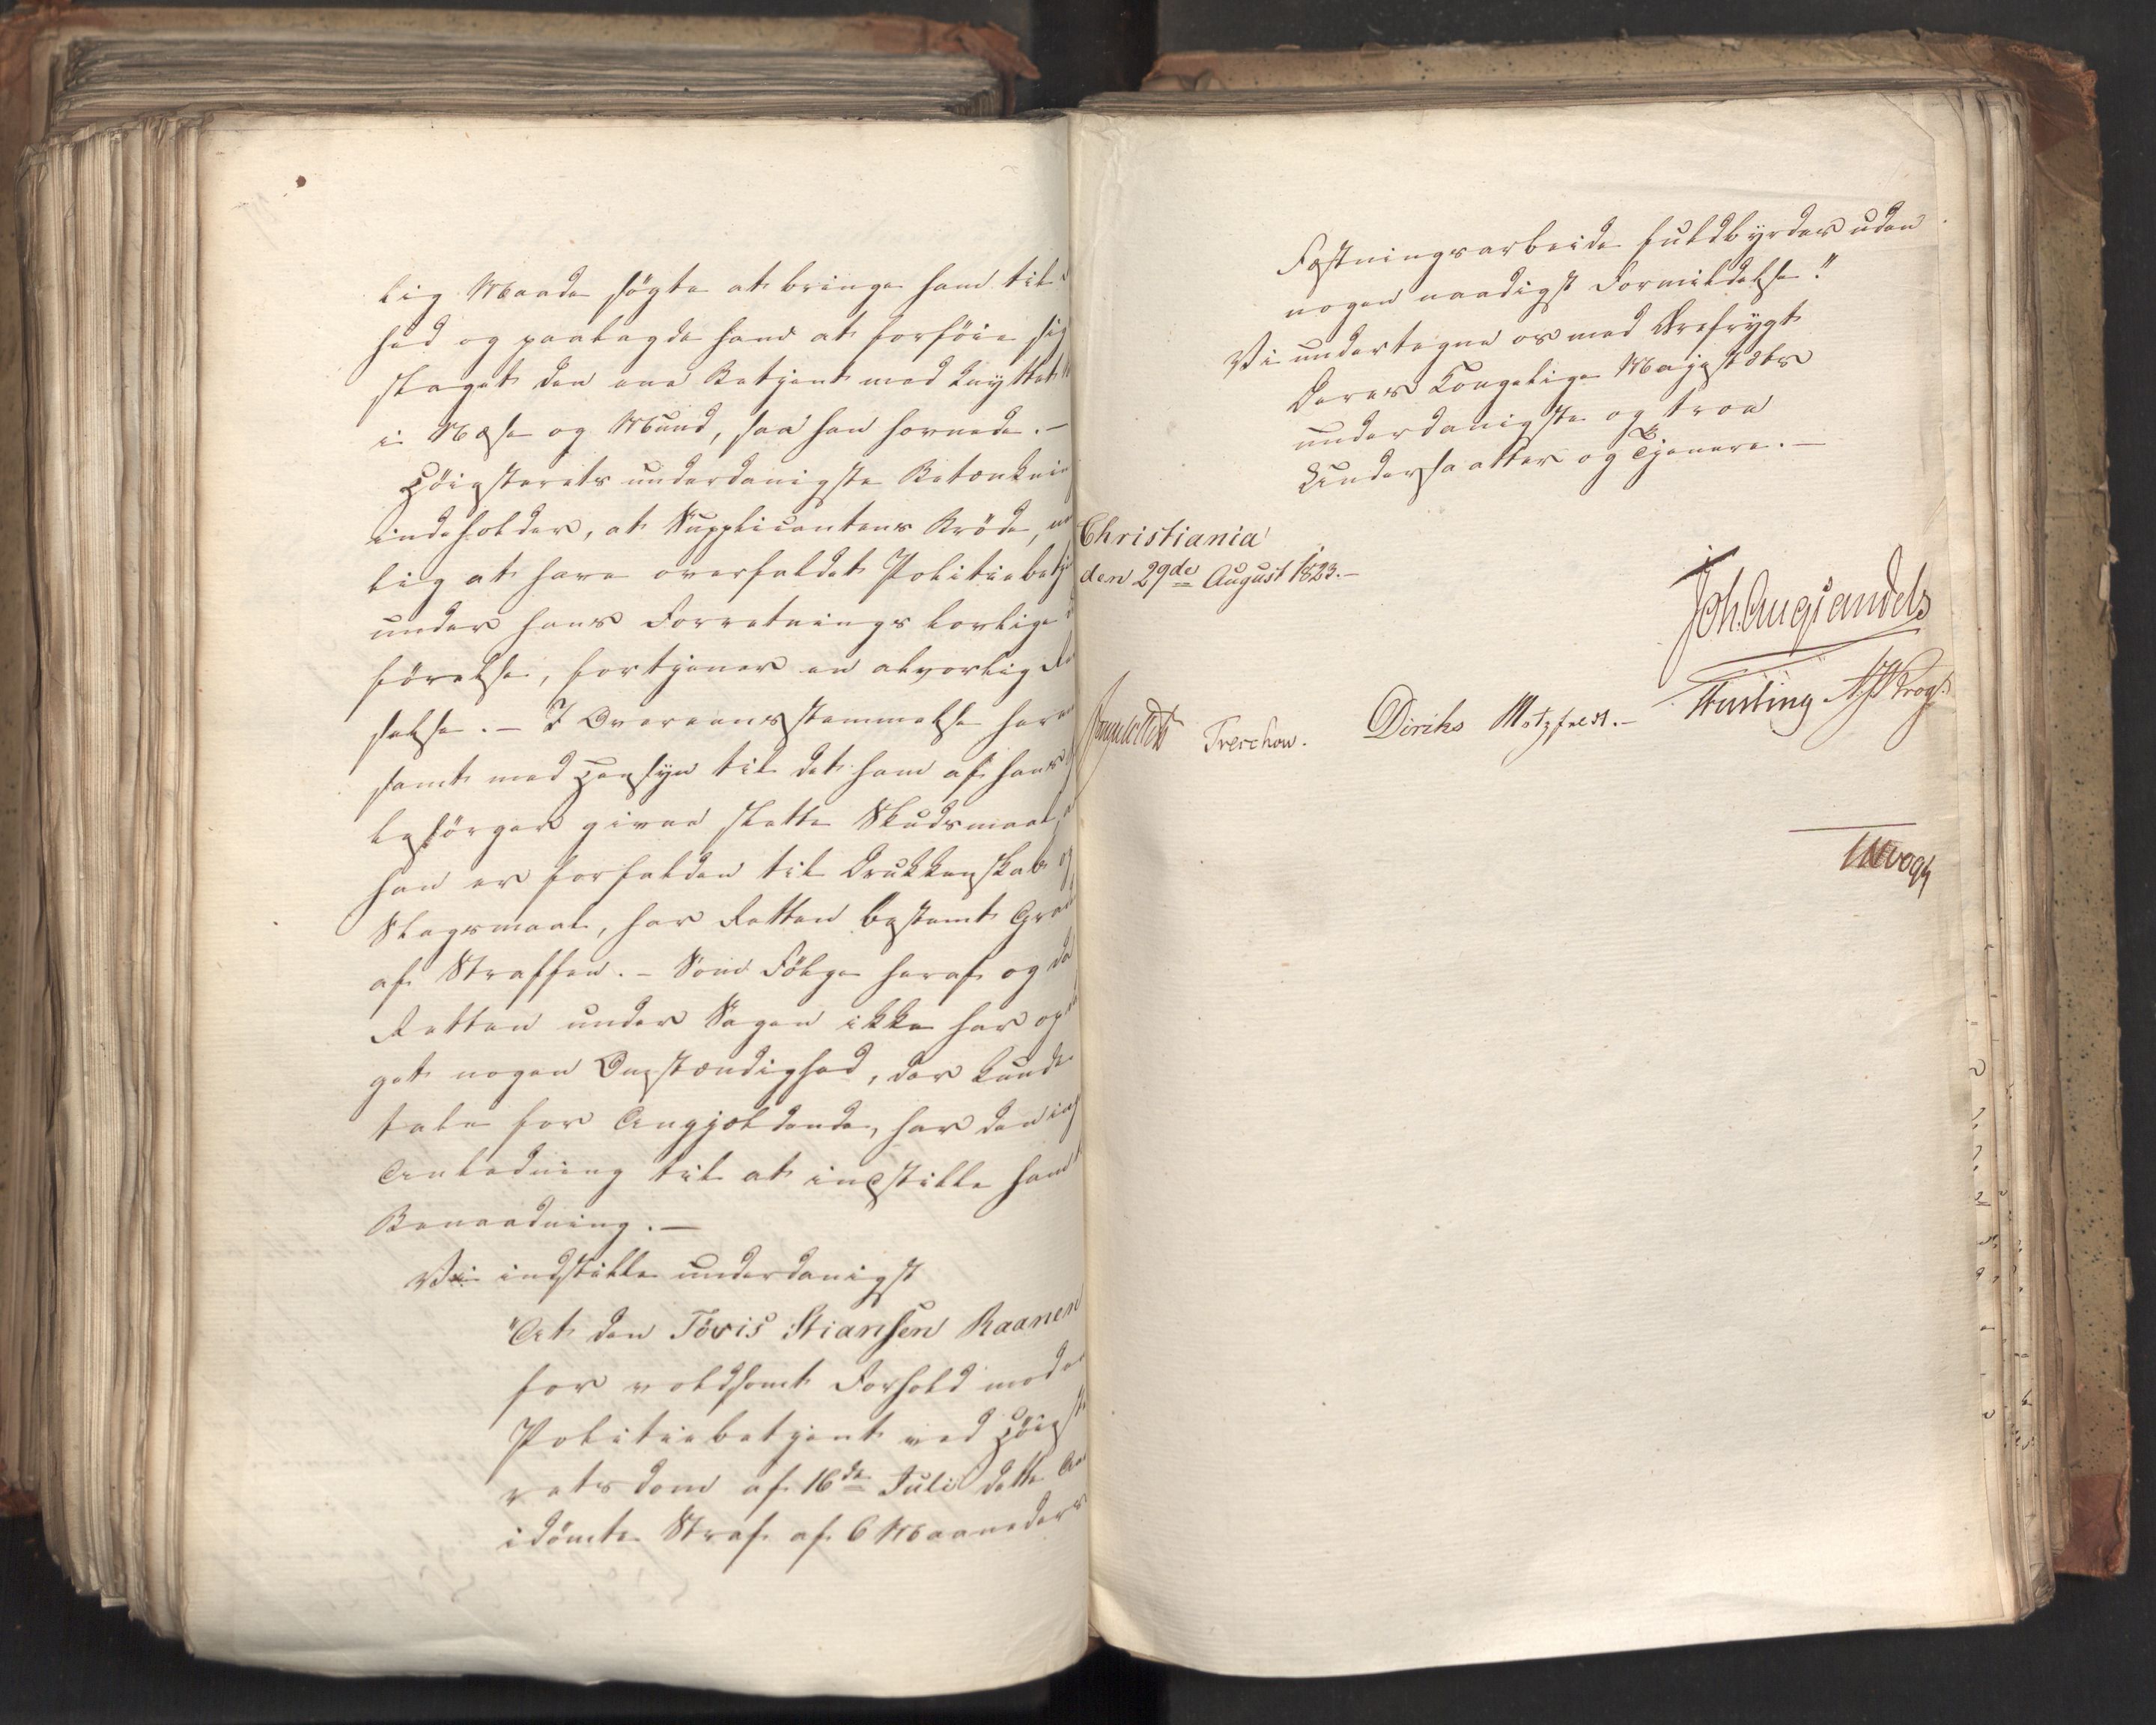 lig Maade søgte at bringe ham til
hed og paalagde ham at forføie sig
slaget den ene Betjent med knyttet
i Næse og Mund, saa han hovnede. -
Høiesterets underdanigste Betænkni
indeholder, at Supplicantens Bröde,
lig at have overfaldet Politiebetj
under hans Forretnings lovlige
førelse, fortjener en alvorlig Re
selse. - I Overeensstemmelse her
samt med Hensyn til det ham af hans
lesörger givne slette Skudsmaal,
han er forfalden til Drukkenskab og
Slagsmaal, har Retten bestemt Grad
af Straffen. - Som Fölge heraf og da
Retten under Sagen ikke har op
get nogen Omstændighed, der kunde
tale for Angjældende, har den in
Anledning til at indstille ham
Benaadning. -
Vi indstille underdanigst
"At den Tövis Stiansen Raanen
for voldsomt Forhold mod
Politiebetjent ved Høieste
retsdom af 16de Juli dette Aa
idømte Straf af 6 Maaneders
Fæstningsarbeide fuldbyrdes uden
nogen naadigst Formildelse."
Vi undertegne os med Ærefrygt
Deres Kongelige Majestæts
underdanigste og troe
Undersaatter og Tjenere. -
Christiania
den 29de August 1823. -
Joh. Aug Sandels
Sommerfeldt Treschow. Diriks Motzfeldt. - Fasting Krog
Vogt